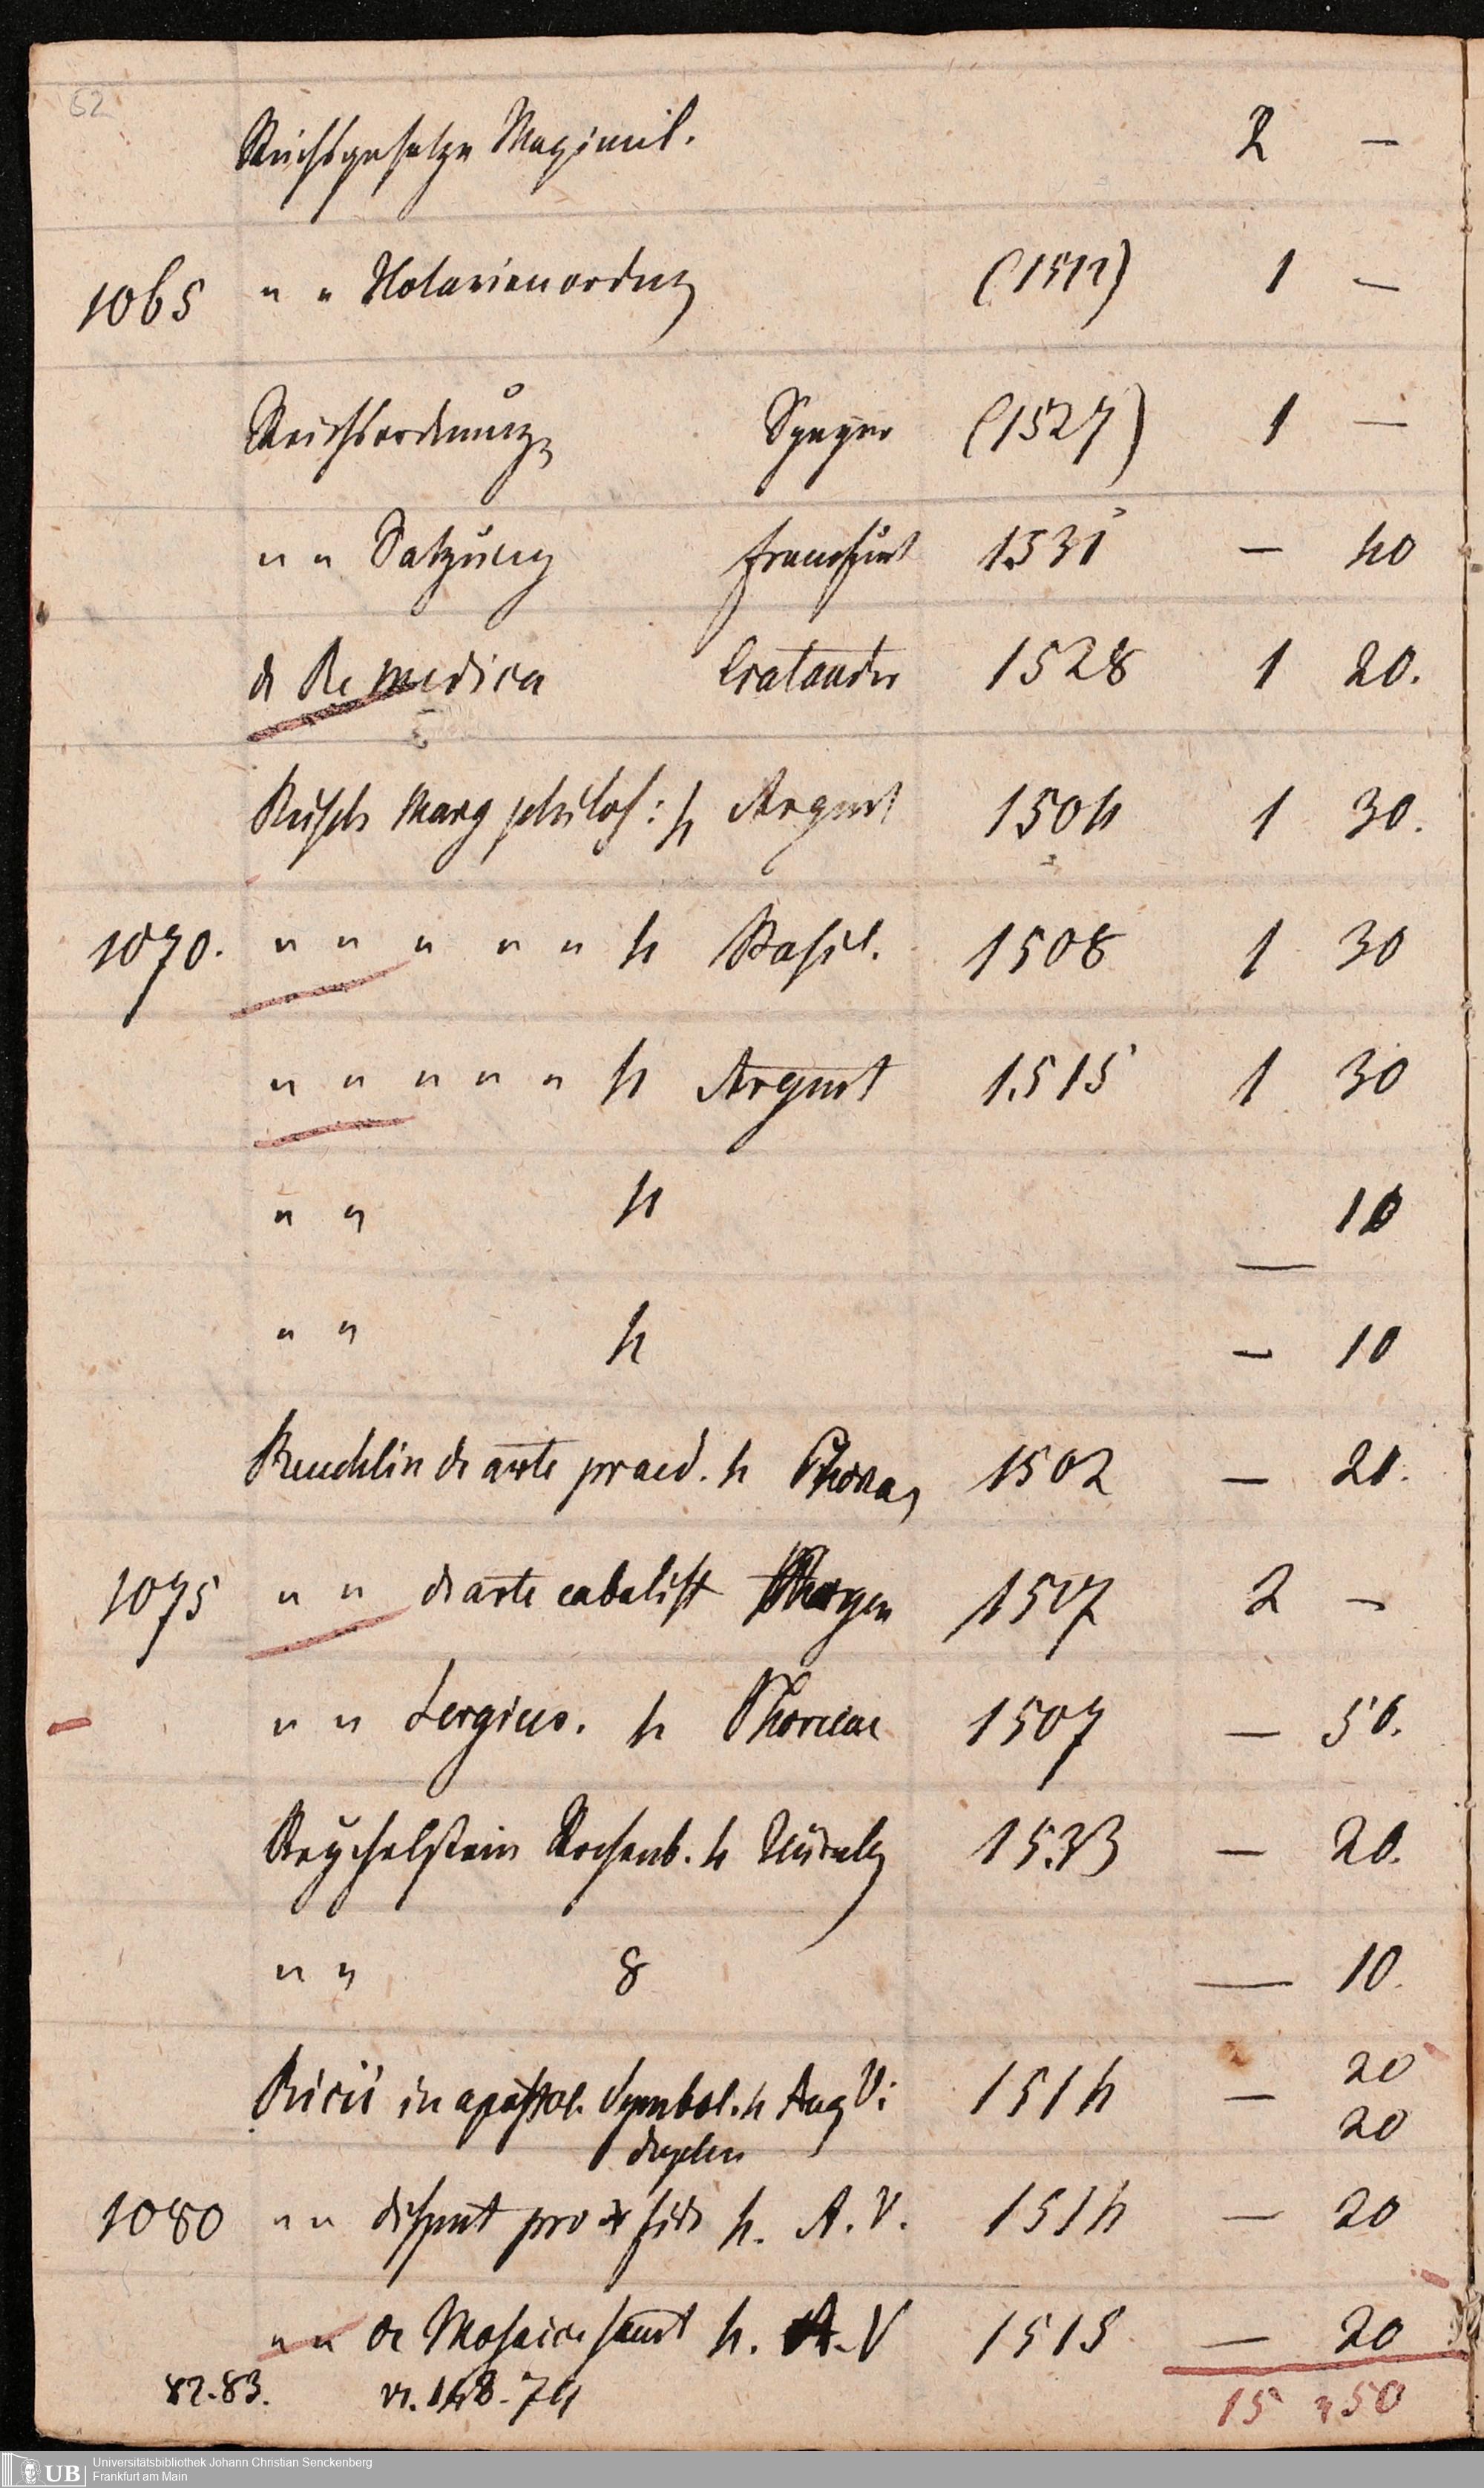 62
Reichsgesetze Maximil. 2 —
1065 " " Notarienordng (1512) 1 —
Reichsordnung Speyer (1527) 1 —
" " Satzung Frankfurt 1531 — 40
de Re medica Cratander 1528 1 20.
Reisch Marg philos: 4 Argent 1504 1 30.
1070. " " " " " 4 Basil. 1508 1 30
" " " " " 4 Argent 1515 1 30
" " 4 — 10
" " 4 — 10
Reuchlin de arte praed. 4 Phorca 1502 — 20.
1075 " " de arte cabalist 1517 2 —
" " Sergius. 4 Phorcae 1507 — 50.
Reychelstein 4 Nürnbg 1533 — 20.
" " 8 — 10.
Ricii in apostol. Symbol. 4 Aug Vi 1514 — 20
duplex 20
1080 " " disput pro fide 4. A. V. 1514 — 20
" " de Mosaica sanct 4. A. V 1515 — 20
82.83. 15 50
UB Universitätsbibliothek Johann Christian Senckenberg
Frankfurt am Main